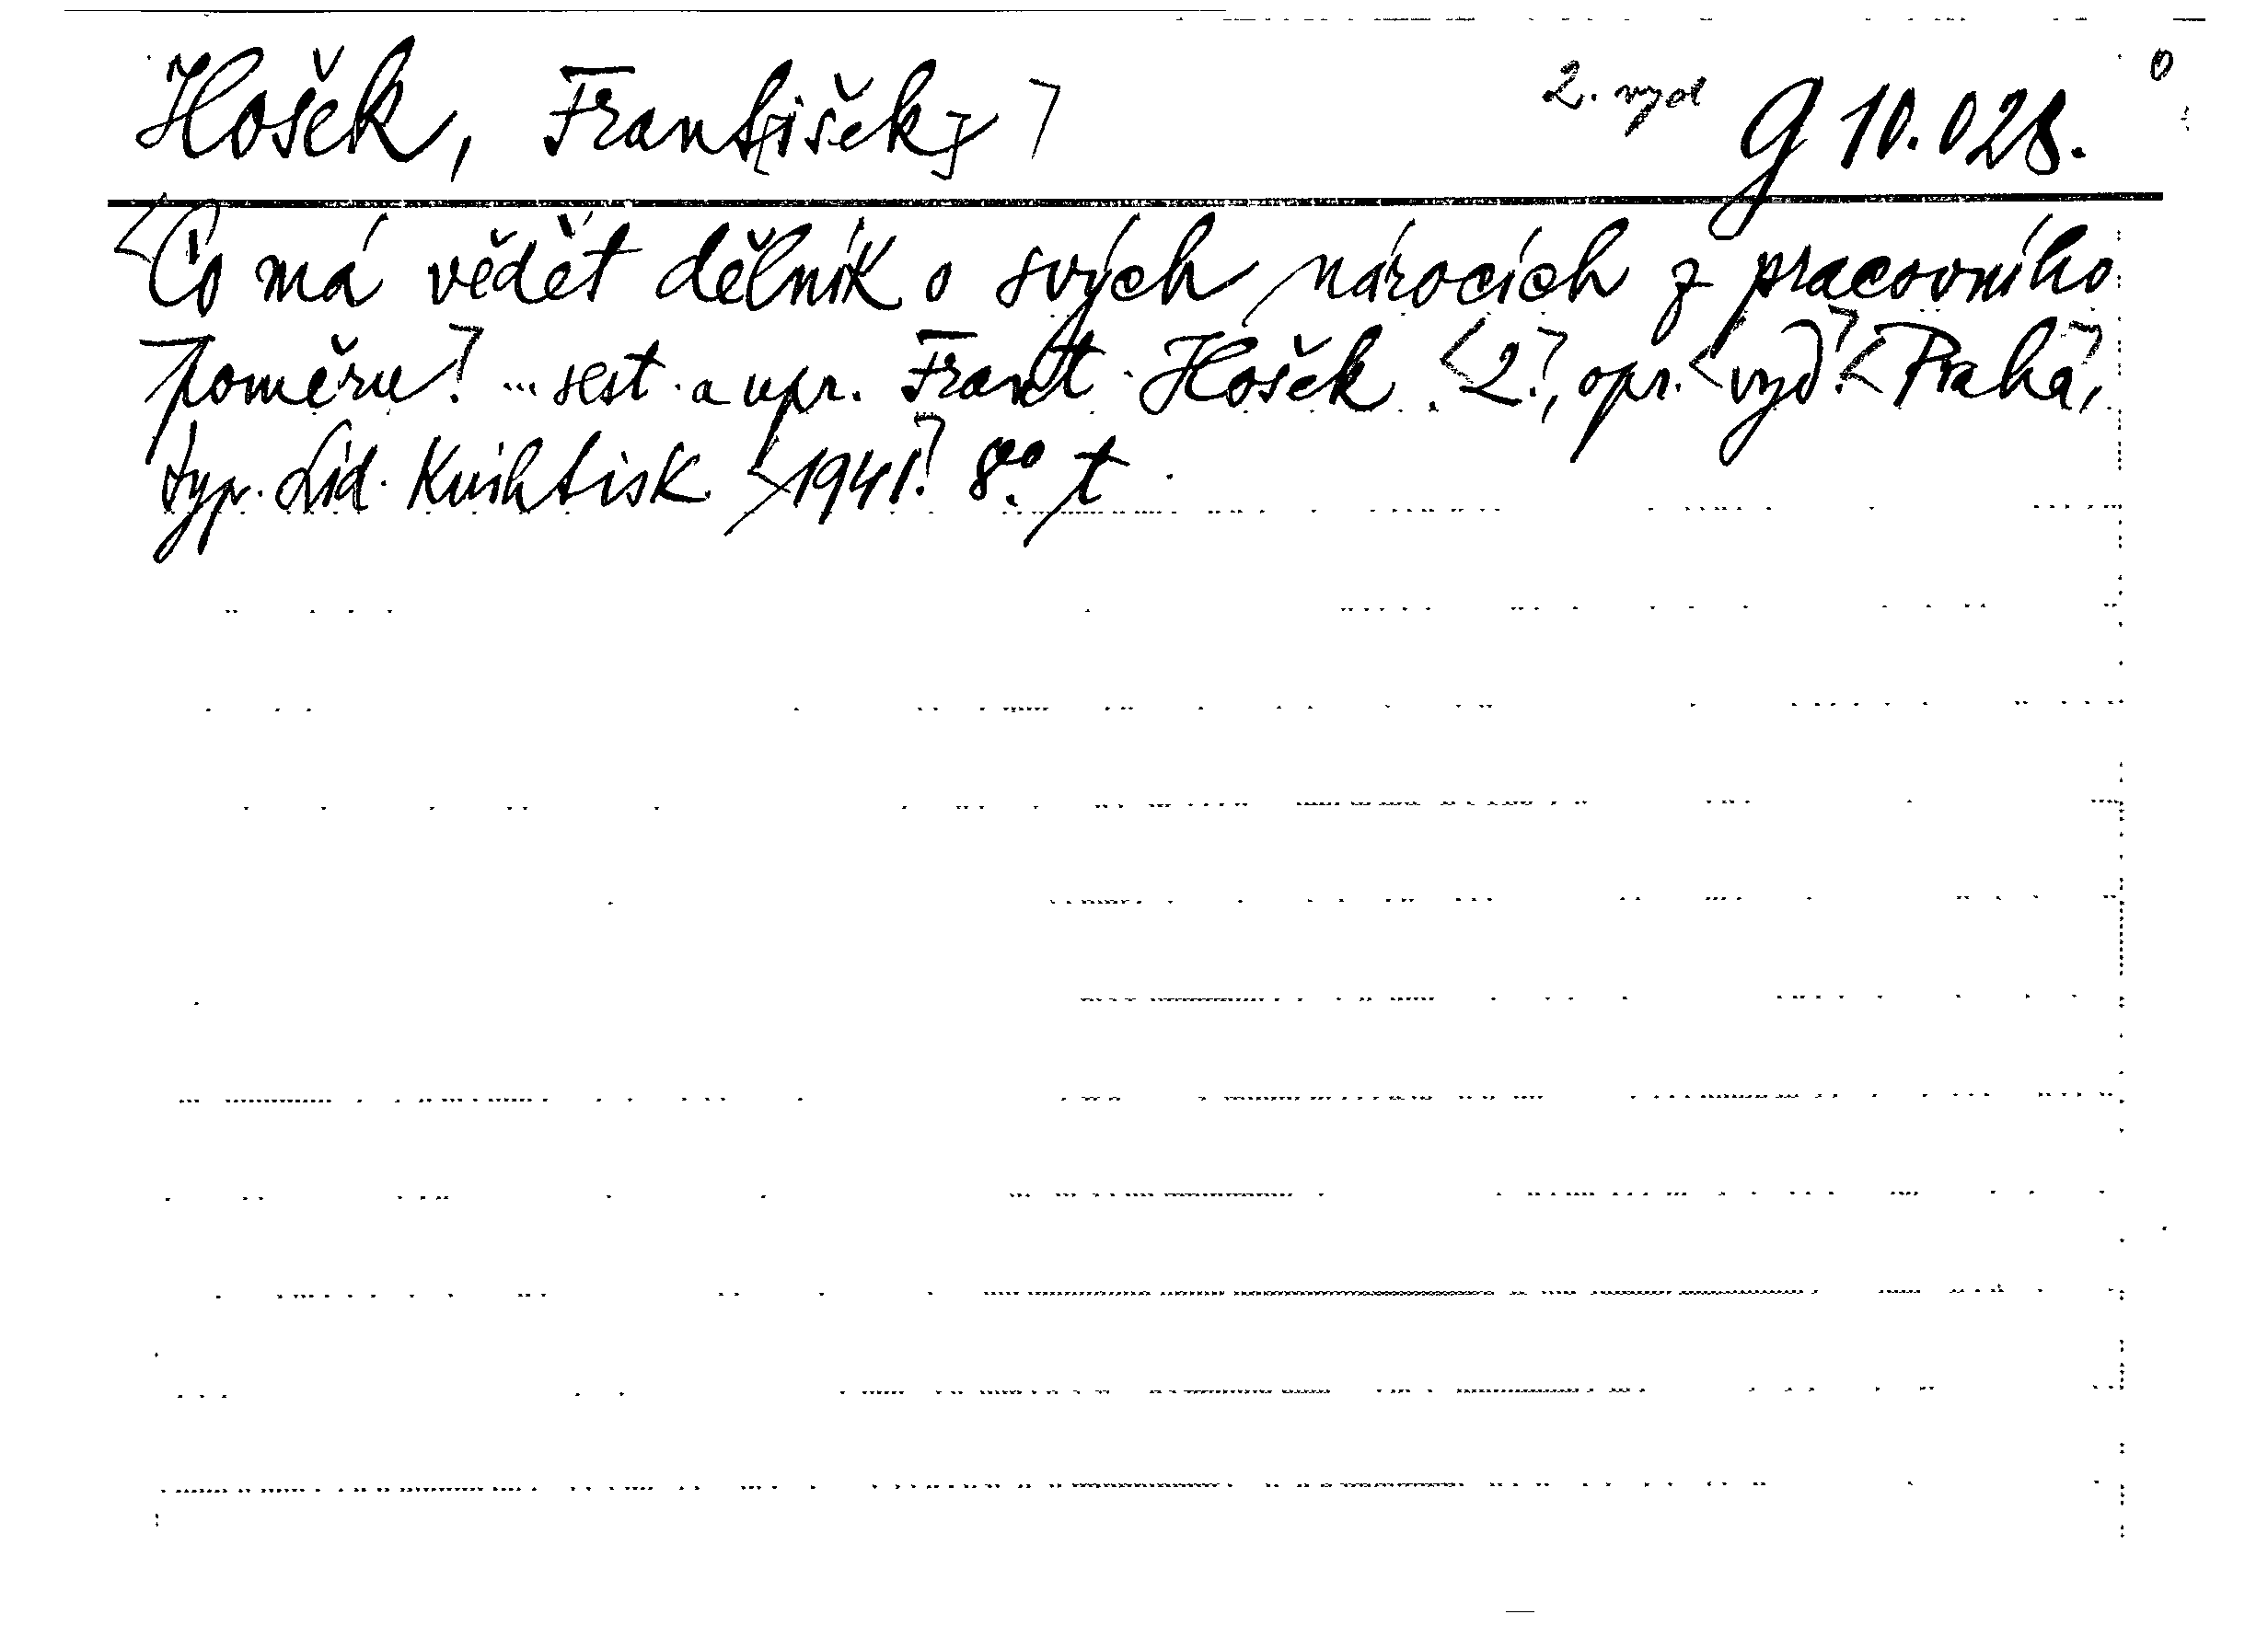 Hošek, Frant[išek] 2. vyd G 10.028.
Co má vědět dělník o svých nárocích z pracovního
poměru? ... sest. a upr. Frant. Hošek. 2., opr. vyd. Praha,
typ. Lid. Knihtisk 1941. 8°. t.